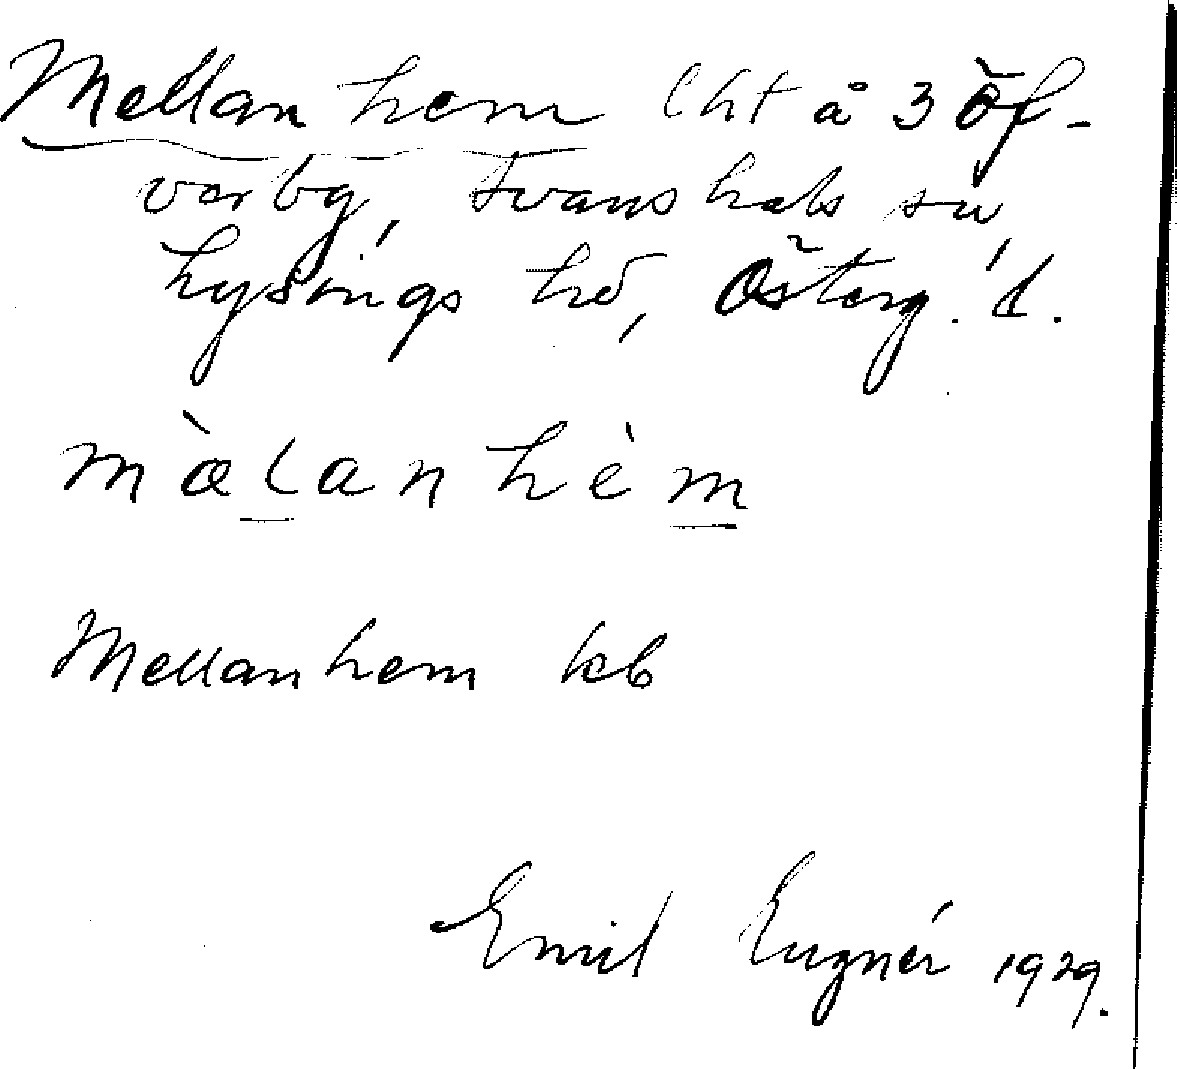 Mellanhem lht å 3 Öf-
verby, Svanshals sn,
Lysings hd, Österg. l.
mὰlanhèm
Mellanhem kb
Emil 1929.